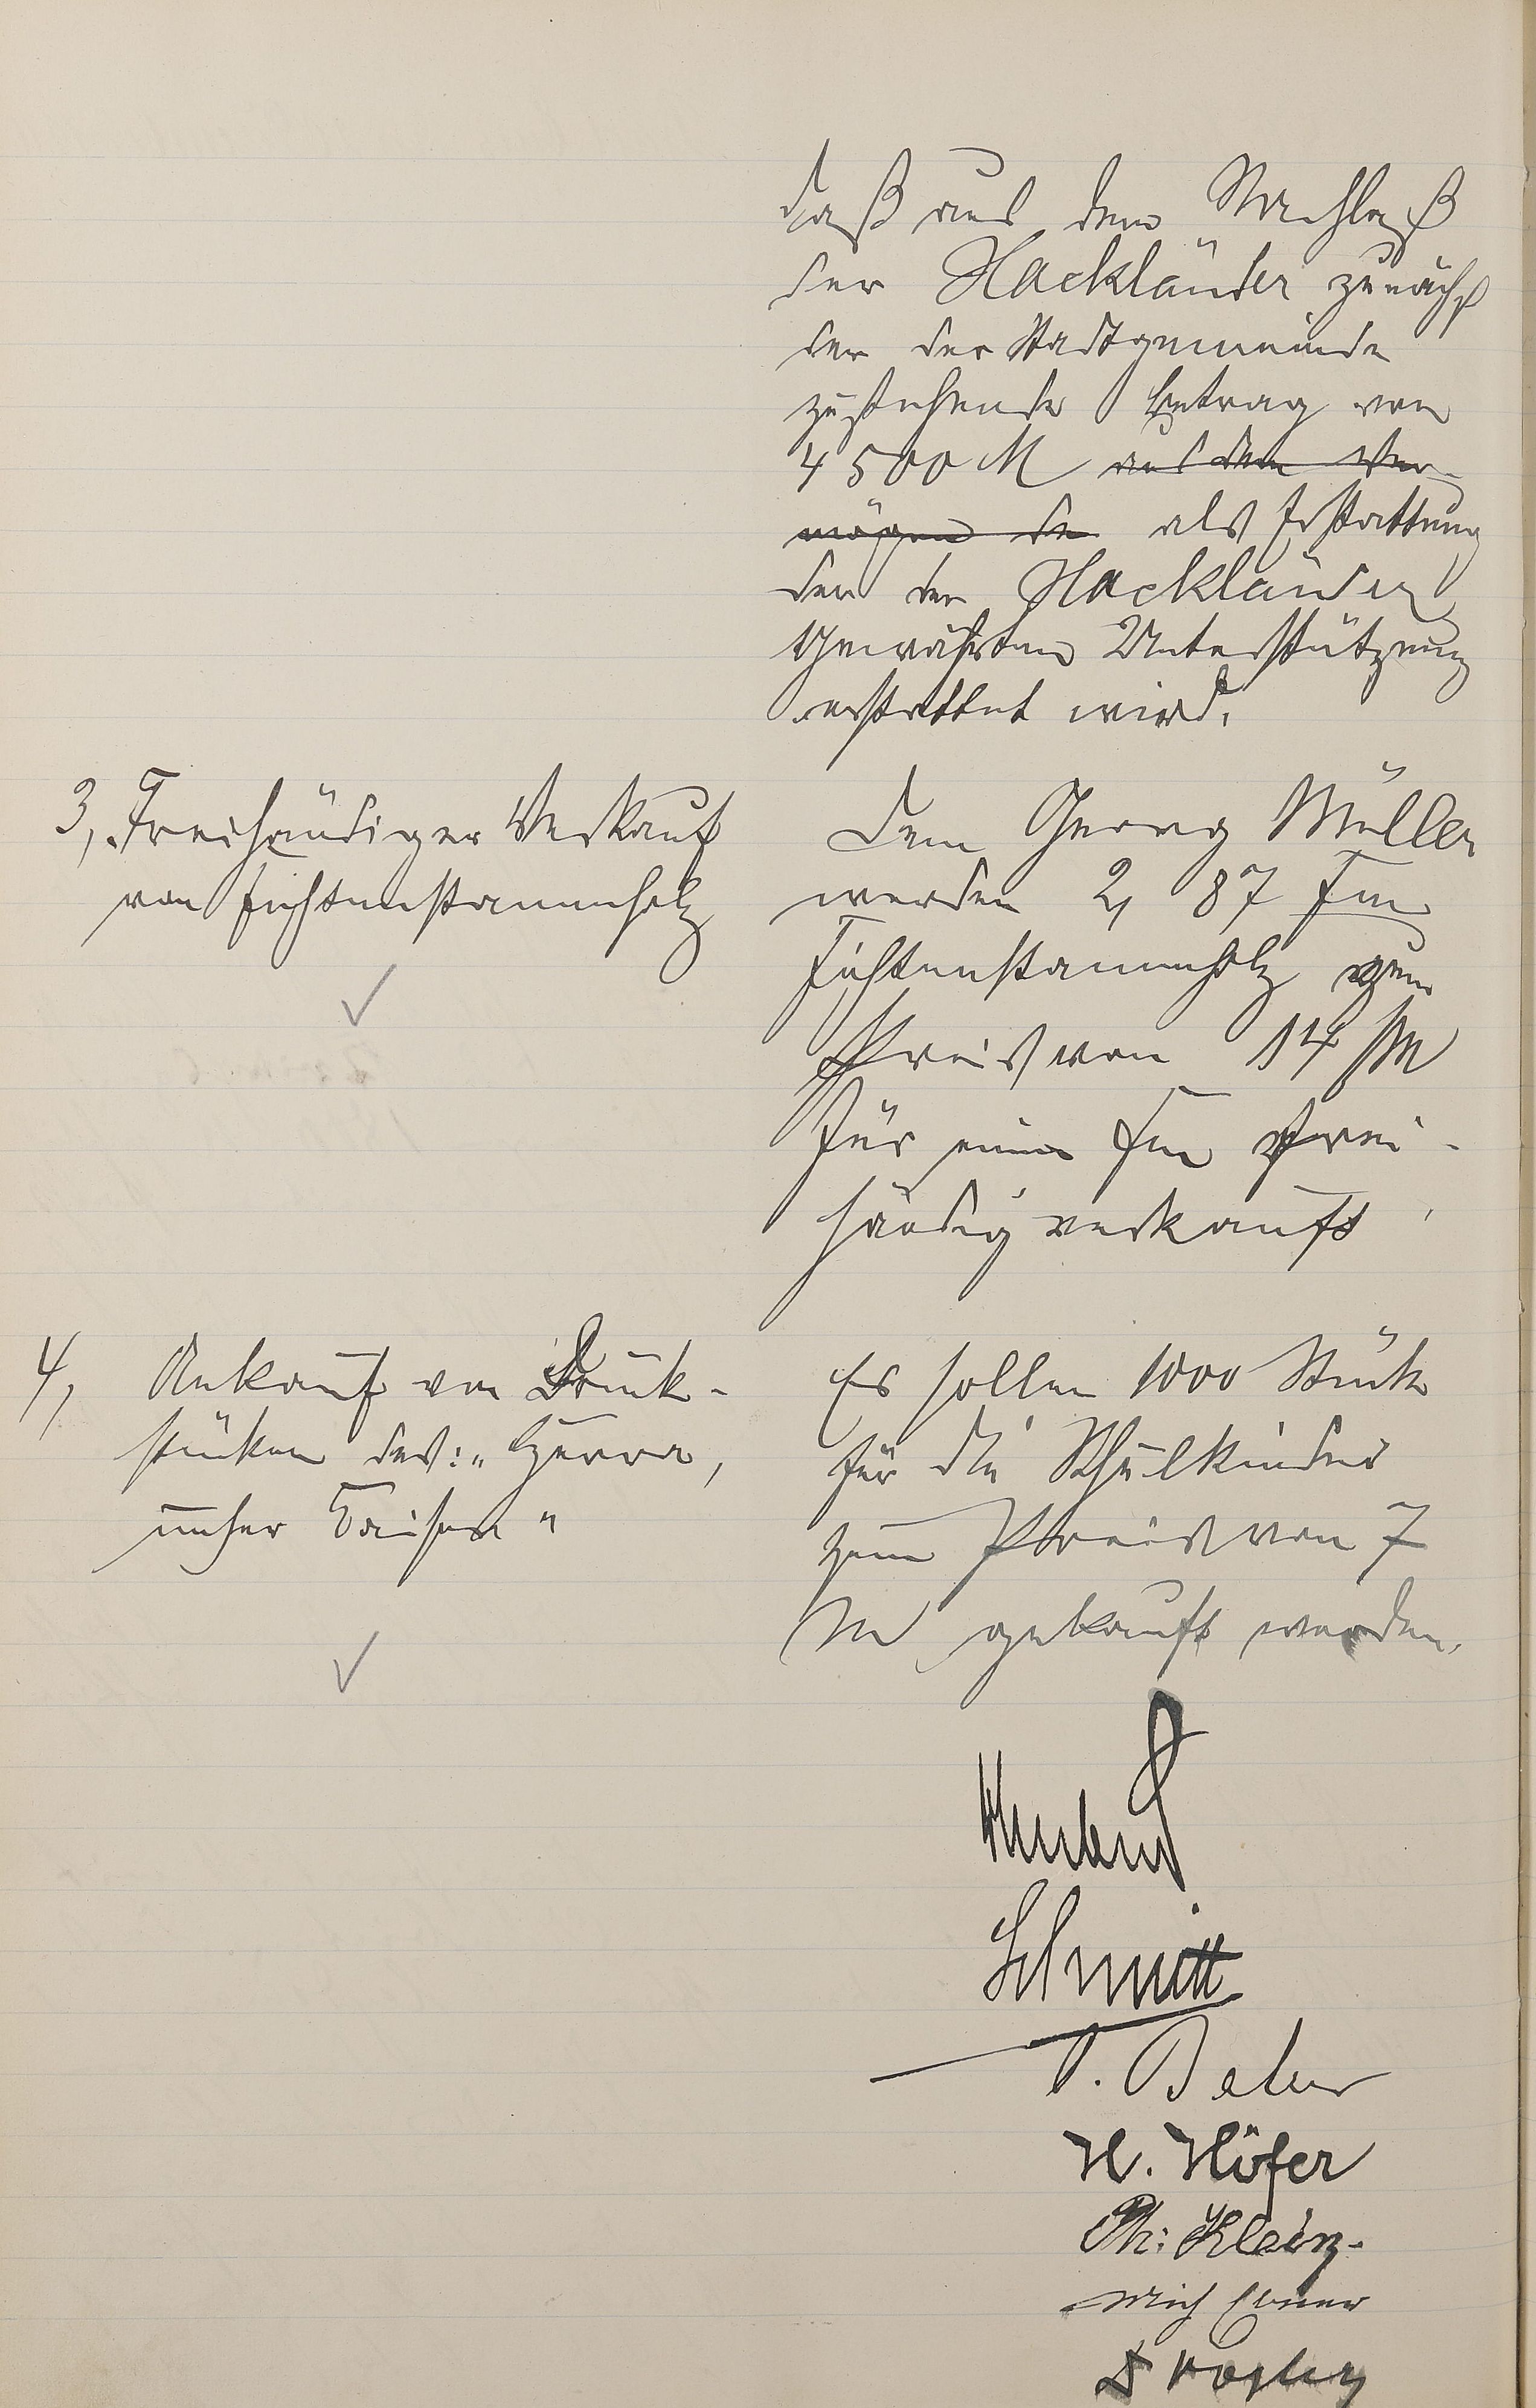 daß aus dem Nachlaß
der Hackländer zunächst
der der Stadtgemeinde
zustehende Betrag von
4500 M aus dem Ver-
mögen de als Erstattung
der der Hackländer
gewährten Unterstützung
erstattet wird.
3, Freihändiger Verkauf
von Fichtenstammholz
Dem Georg Müller
werden 2,87 Fm
Fichtenstammholz zum
Preis von 14 M
für einen Fm frei-
händig verkauft.
4, Ankauf von Druck-
stücken des: "
unser "
Es sollen 1000 Stück
für die Schulkinder
zum Preis von 7
M gekauft werden.
Schmitt
H. Höfer
Ph: Klein
Mich